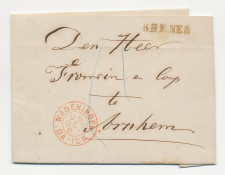 RHENEN
Den Heer
Fromein & Co
te
Arnhem
WAGENINGEN